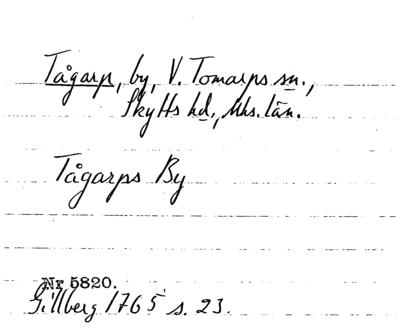 Tågarp, by, V. Tomarps sn.,
Skytts hd., Mhs. län.
Tågarps By
Nr 5820.
Gillberg 1765 s. 23.